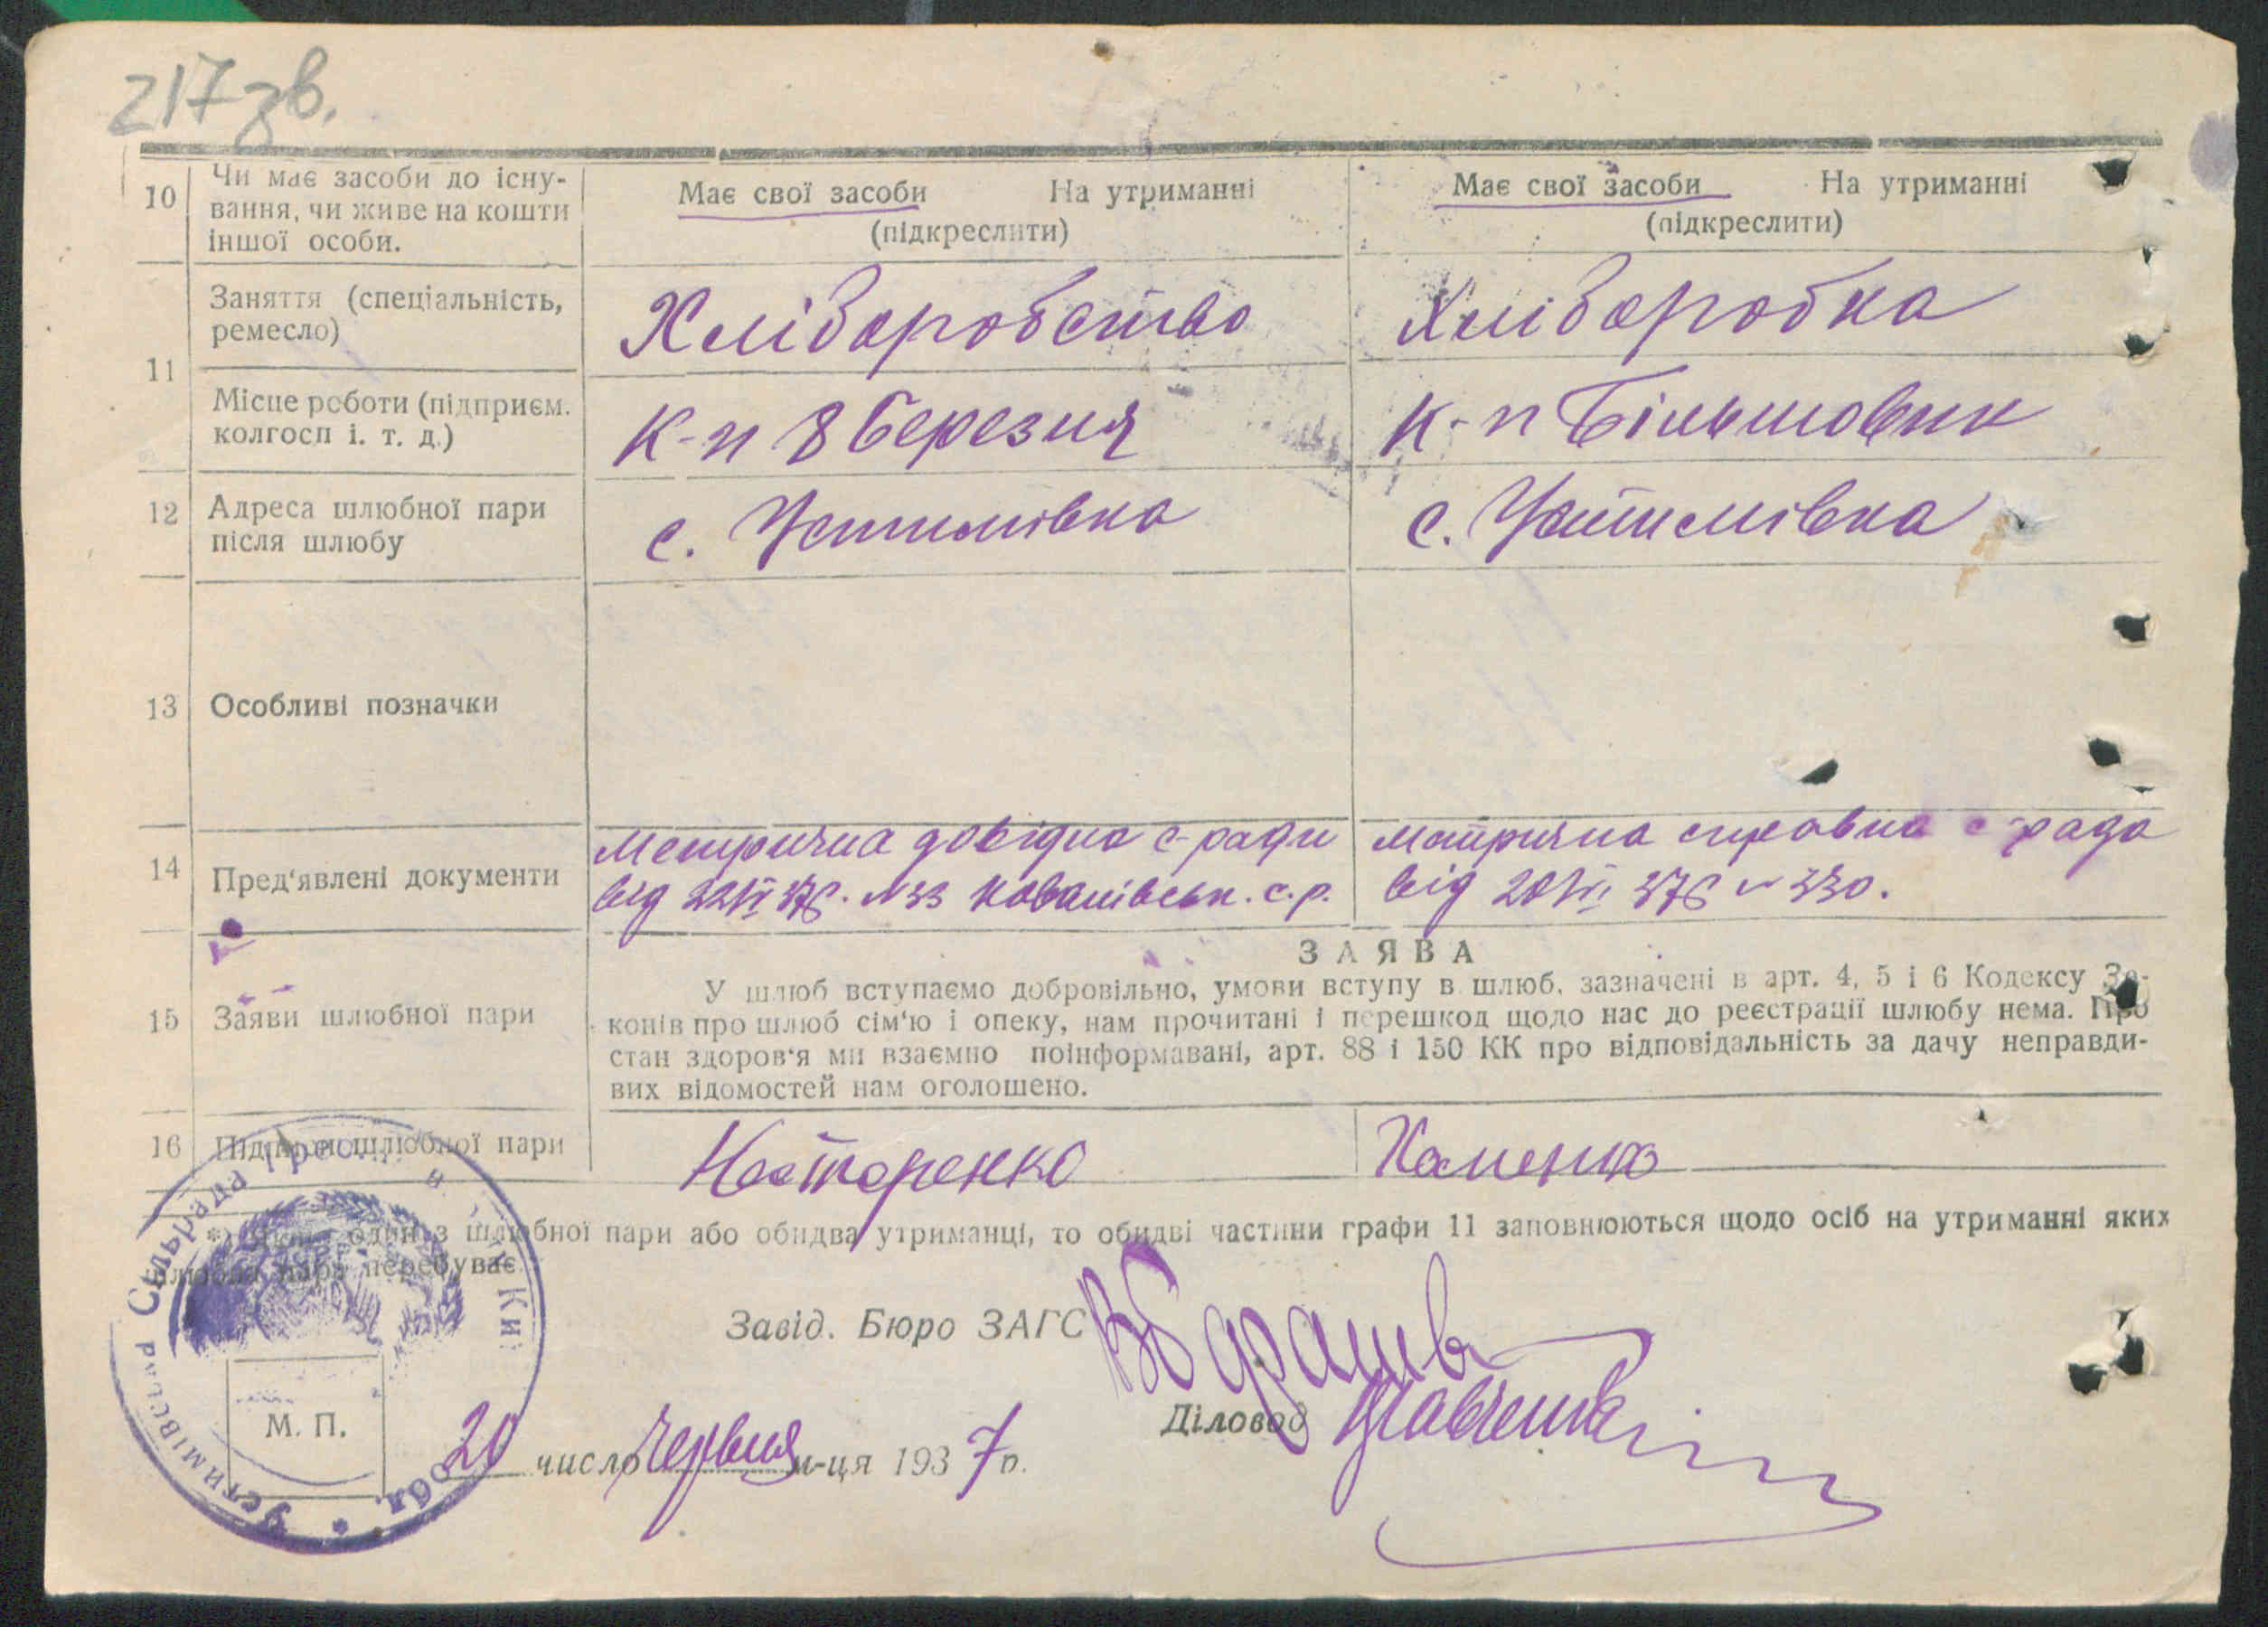 217 зв.
10 Чи має засоби до існу- Має свої засоби На утриманні Має свої засоби На утриманні
вання, чи живе на кошти (підкреслити) (підкреслити)
іншої особи.
Заняття (спеціальність, Хліборобство Хліборобка
ремесло)
11
Місце роботи (підприєм. к-п 8 Березня к-п Більшовик
колгосп і. т. д.)
12 Адреса шлюбної пари с. Устимівка с. Устимівка
після шлюбу
13 Особливі позначки
14 Пред'явлені документи
Метрична довідка с-ради
від 22/VI 37р. №33 Ковалівськ. с.р.
метрична с-рада
від 20/VI 37р № 330.
ЗАЯВА
15 Заяви шлюбної пари
У шлюб вступаємо добровільно, умови вступу в шлюб, зазначені в арт. 4, 5 і 6 Кодексу За-
конів про шлюб сім'ю і опеку, нам прочитані і перешкод щодо нас до реєстрації шлюбу нема. Про
стан здоров'я ми взаємно поінформавані, арт. 88 і 150 КК про відповідальність за дачу неправди-
вих відомостей нам оголошено.
16 Підписи шлюбної пари Несторенко Хоменко
*) Якщо один з шлюбної пари або обидва утриманці, то обидві частини графи 11 заповнюються щодо осіб на утриманні яких
шлюбна пара перебуває
Завід. Бюро ЗАГС
Діловод
М. П.
20 число Червня м-ця 1937 р.
Устимівська Сільрада